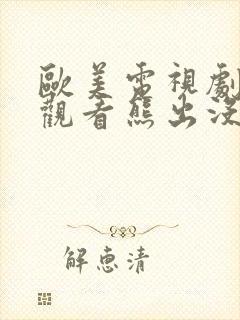 歐美電視劇
觀看熊出沒
解惠清